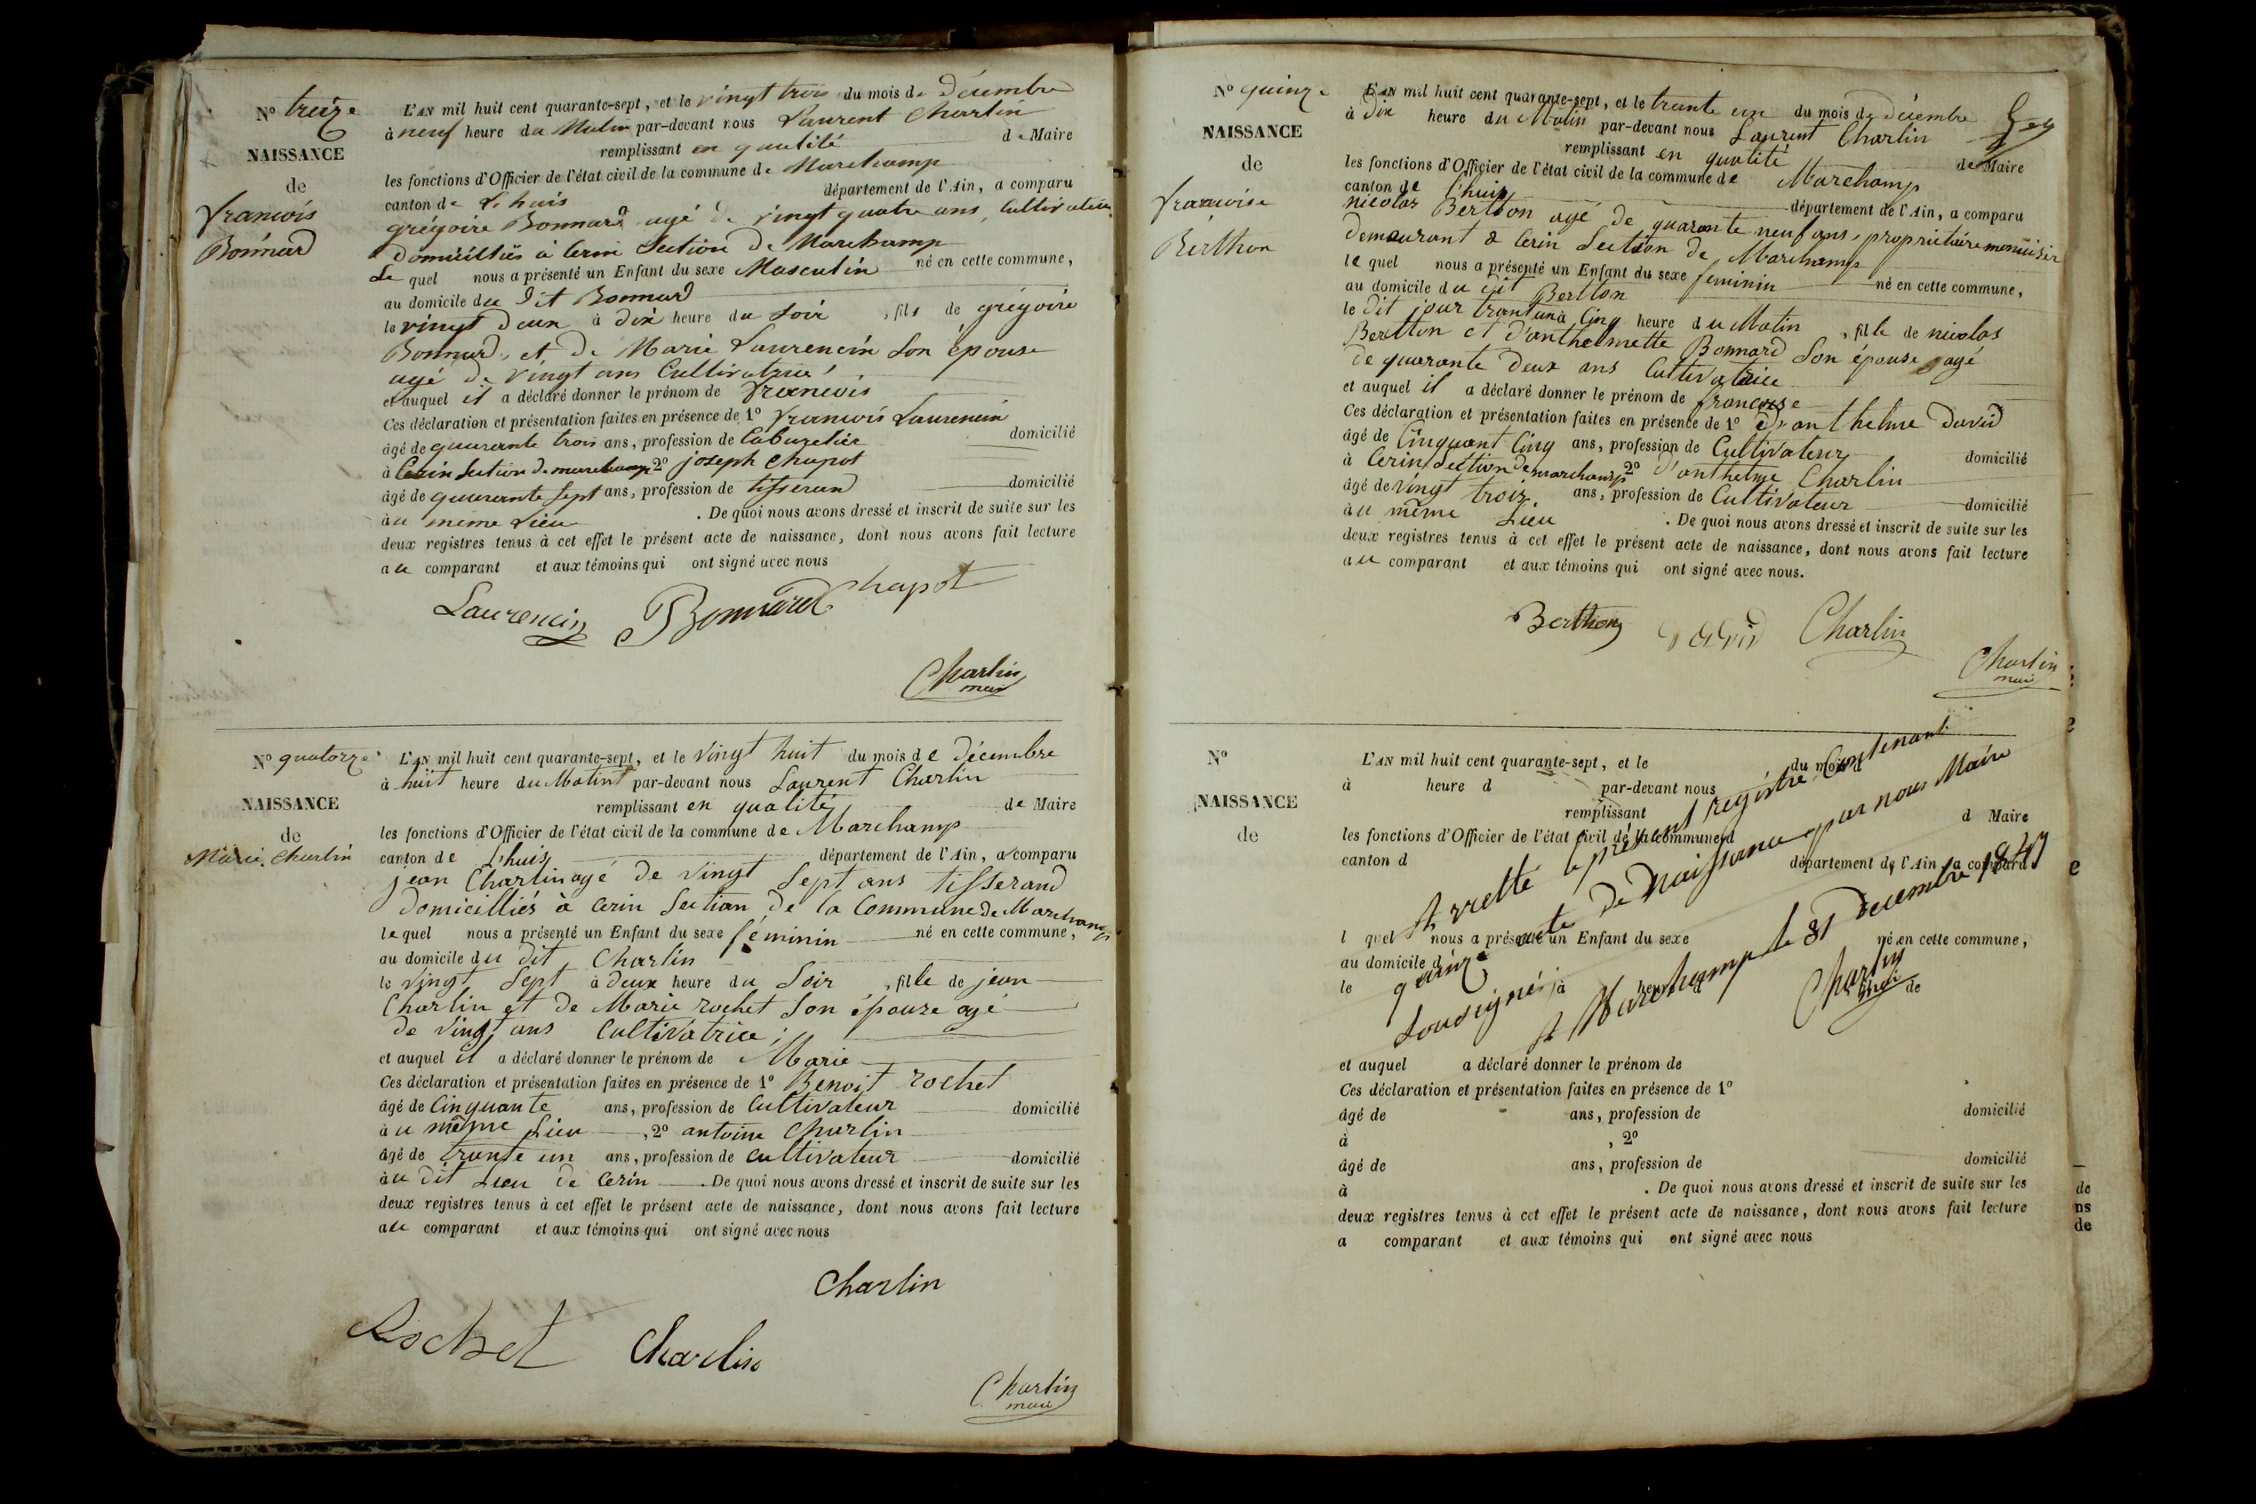 N° treize
NAISSANCE
de
francois
Bonnard
L'AN mil huit cent quarante-sept, et le vingt trois du mois de décembre
à neuf heure du Matin par-devant nous Laurent Charlin
remplissant en qualité de Maire
les fonctions d'Officier de l'état civil de la commune de Marchamp
canton de L'huis département de l'Ain, a comparu
grégoire Bonnard agé de vingt quatre ans, Cultivateur
domicilliés à Cerin Section de Marchamp
Le quel nous a présenté un Enfant du sexe Masculin né en cette commune,
au domicile du dit Bonnard
le vingt deux à dix heure du Soir, fils de grégoire
Bonnard, et de Marie Laurencin Son épouse
agé de vingt ans Cultivatrice
et auquel il a déclaré donner le prénom de francois
Ces déclaration et présentation faites en présence de 1° francois Laurencin
âgé de quarante trois ans, profession de Cabaretier domicilié
à Cerin Section de marchamp 2° joseph Chapot
âgé de quarante Sept ans, profession de tisserand domicilié
au même Lieu . De quoi nous avons dressé et inscrit de suite sur les
deux registres tenus à cet effet le présent acte de naissance, dont nous avons fait lecture
au comparant et aux témoins qui ont signé avec nous
Laurencin Bonnard Chapot
Charlin
maire
N° quatorze
NAISSANCE
de
Marie Charlin
L'AN mil huit cent quarante-sept, et le vingt huit du mois de décembre
à huit heure du Matin par-devant nous Laurent Charlin
remplissant en qualité de Maire
les fonctions d'Officier de l'état civil de la commune de Marchamp
canton de L'huis département de l'Ain, a comparu
jean Charlin agé de vingt Sept ans tisserand
domicilliés à Cerin Section de la Commune de Marchamp
le quel nous a présenté un Enfant du sexe féminin né en cette commune,
au domicile du dit Charlin
le vingt Sept à deux heure du Soir, fille de jean
Charlin et de Marie rochet Son épouze agé
de vingt ans Cultivatrice;
et auquel il a déclaré donner le prénom de Marie
Ces déclaration et présentation faites en présence de 1° Benoit rochet
âgé de Cinquante ans, profession de Cultivateur domicilié
au même Lieu, 2° antoine Charlin
âgé de trante un ans, profession de cultivateur domicilié
au dit Lieu de Cerin . De quoi nous avons dressé et inscrit de suite sur les
deux registres tenus à cet effet le présent acte de naissance, dont nous avons fait lecture
au comparant et aux témoins qui ont signé avec nous
Charlin
Rochet Charlin
Charlin
maire
N° quinze
NAISSANCE
de
francoise
Berthon
L'AN mil huit cent quarante-sept, et le trante un du mois de décembre
à dix heure du Matin par-devant nous Laurent Charlin
remplissant en qualité de Maire
les fonctions d'Officier de l'état civil de la commune de Marchamp
canton de L'huis département de l'Ain, a comparu
nicolas Bertton agé de quarante neuf ans, propriétaire menuisier
demeurant à Cerin Section de Marchamp
le quel nous a présenté un Enfant du sexe feminin né en cette commune,
au domicile du dit Bertton
le dit jour trant un à Cinq heure du Matin, fille de nicolas
Bertton et d'anthelmette Bonnard Son épouse agé
de quarante deux ans Cultivatrice
et auquel il a déclaré donner le prénom de francoise
Ces déclaration et présentation faites en présence de 1° d'anthelme David
âgé de Cinquant Cinq ans, profession de Cultivateur domicilié
à Cerin Section de marchamp 2° d'anthelme Charlin
âgé de vingt trois ans, profession de Cultivateur domicilié
au même Lieu . De quoi nous avons dressé et inscrit de suite sur les
deux registres tenus à cet effet le présent acte de naissance, dont nous avons fait lecture
au comparant et aux témoins qui ont signé avec nous.
Berthon David Charlin
Charlin
maire
N°
NAISSANCE
de
L'AN mil huit cent quarante-sept, et le du mois d
à heure d par-devant nous
remplissant d Maire
les fonctions d'Officier de l'état civil de la commune d
canton d département de l'Ain, a comparu
l quel nous a présenté un Enfant du sexe né en cette commune,
au domicile d
le à heure d de
Arretté le présent registre Contenant
quinze acte de Naissance par nous Maire
Sousigné
A Marchamp le 31 Decembre 1847
Charlin
maire
et auquel a déclaré donner le prénom de
Ces déclaration et présentation faites en présence de 1°
âgé de ans, profession de domicilié
à , 2°
âgé de ans, profession de domicilié
à . De quoi nous avons dressé et inscrit de suite sur les
deux registres tenus à cet effet le présent acte de naissance, dont nous avons fait lecture
a comparant et aux témoins qui ont signé avec nous
e
de
ns
de